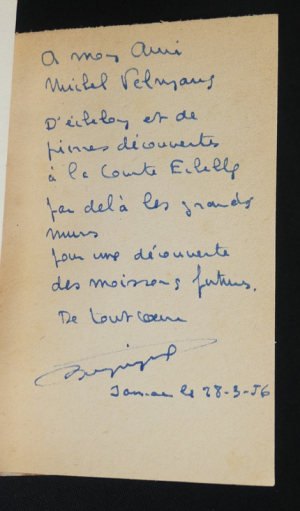 A mon Ami
Michel
D'échelon et de
pierres découvertes
à la Courte Echelle
par delà les grands
murs
pour une découverte
des moissons futures.
De tout cœur
le 28-3-56